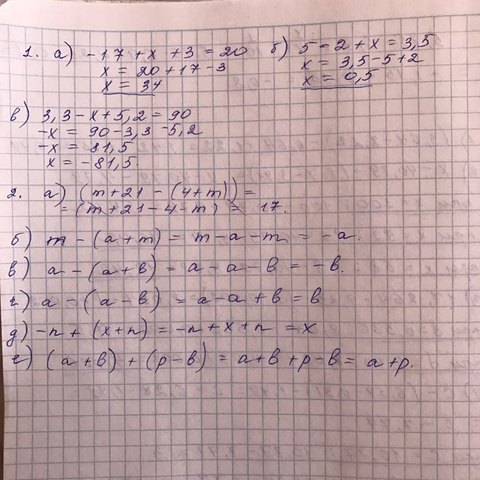 1. а) -17 + x + 3 = 20
x = 20 + 17 - 3
x = 34
б) 5 - 2 + x = 3,5
x = 3,5 - 5 + 2
x = 0,5
в) 3,3 - x + 5,2 = 90
-x = 90 - 3,3 - 5,2
-x = 81,5
x = -81,5
2. а) (m + 21 - (4 + m)) =
= (m + 21 - 4 - m) = 17.
б) m - (a + m) = m - a - m = -a.
в) a - (a + в) = a - a - в = -в.
г) a - (a - в) = a - a + в = в
д) -n + (x + n) = -n + x + n = x
е) (a + в) + (p - в) = a + в + p - в = a + p.